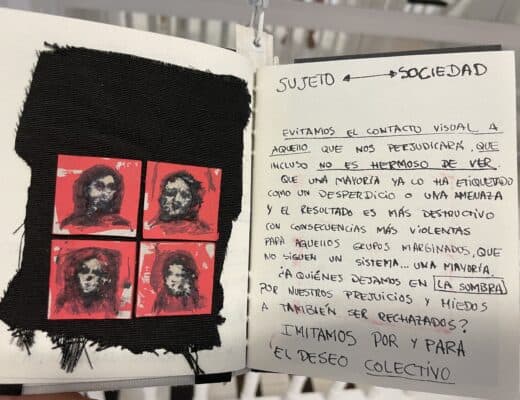 SUJETO ⟷ SOCIEDAD
EVITAMOS EL CONTACTO VISUAL A
AQUELLO QUE NOS PERJUDICARÁ, QUE
INCLUSO NO ES HERMOSO DE VER.
QUE UNA MAYORÍA YA LO HA ETIQUETADO
COMO UN DESPERDICIO O UNA AMENAZA
Y EL RESULTADO ES MÁS DESTRUCTIVO
CON CONSECUENCIAS MÁS VIOLENTAS
PARA AQUELLOS GRUPOS MARGINADOS, QUE
NO SIGUEN UN SISTEMA... UNA MAYORÍA.
¿A QUIÉNES DEJAMOS EN LA SOMBRA
POR NUESTROS PREJUICIOS Y MIEDOS
A TAMBIÉN SER RECHAZADOS?
IMITAMOS POR Y PARA
EL DESEO COLECTIVO